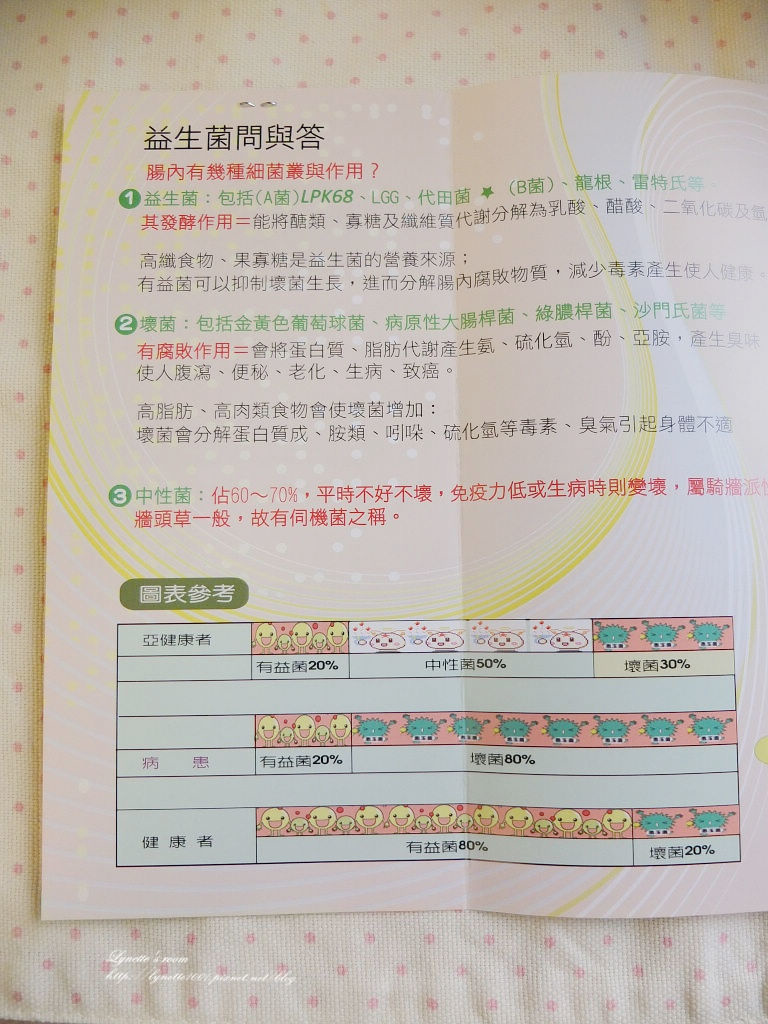 益生菌問與答
腸內有幾種細菌叢與作用？
1 益生菌：包括(A菌)LPK68、LGG、代田菌 ★ (B菌)、龍根、雷特氏等。
其發酵作用＝能將醣類、寡糖及纖維質代謝分解為乳酸、醋酸、二氧化碳及氫
高纖食物、果寡糖是益生菌的營養來源；
有益菌可以抑制壞菌生長，進而分解腸內腐敗物質，減少毒素產生使人健康。
2 壞菌：包括金黃色葡萄球菌、病原性大腸桿菌、綠膿桿菌、沙門氏菌等
有腐敗作用＝會將蛋白質、脂肪代謝產生氨、硫化氫、酚、亞胺，產生臭味
使人腹瀉、便秘、老化、生病、致癌。
高脂肪、高肉類食物會使壞菌增加：
壞菌會分解蛋白質成、胺類、吲哚、硫化氫等毒素、臭氣引起身體不適
3 中性菌：佔60～70%，平時不好不壞，免疫力低或生病時則變壞，屬騎牆派
牆頭草一般，故有伺機菌之稱。
圖表參考
亞健康者
有益菌20% 中性菌50% 壞菌30%
病 患 有益菌20% 壞菌80%
健 康 者
有益菌80% 壞菌20%
Lynette's room
http://lynette1001.pixnet.net/blog